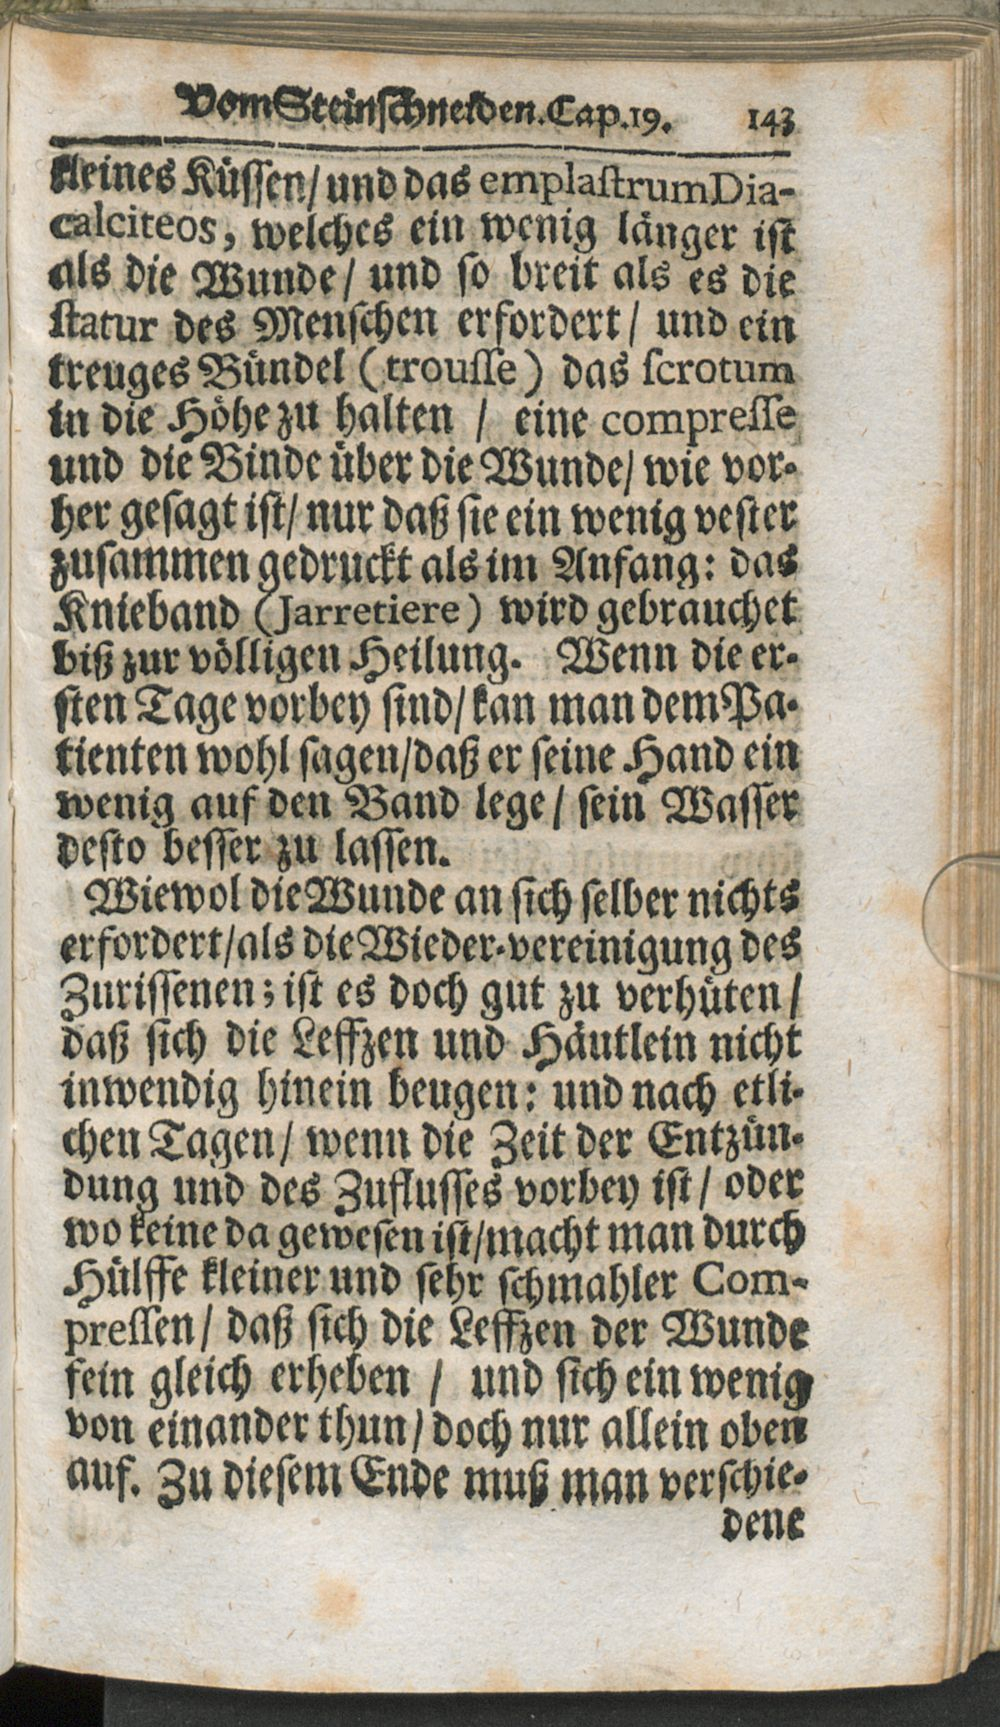 Vom Steinschneiden. Cap. 19. 143
kleines Küssen/ und das emplastrum Dia-
calciteos, welches ein wenig länger ist
als die Wunde/ und so breit als es die
statur des Menschen erfordert/ und ein
treuges Bündel (trousse) das scrotum
in die Höhe zu halten / eine compresse
und die Binde über die Wunde/ wie vor-
her gesagt ist/ nur daß sie ein wenig vester
zusammen gedruckt als im Anfang: das
Knieband (Jarretiere) wird gebrauchet
biß zur völligen Heilung. Wenn die er-
sten Tage vorbey sind/ kan man dem Pa-
tienten wohl sagen/ daß er seine Hand ein
wenig auf den Band lege/ sein Wasser
desto besser zu lassen.
Wiewol die Wunde an sich selber nichts
erfordert/ als die Wieder-vereinigung des
Zurissenen; ist es doch gut zu verhüten/
daß sich die Leffzen und Häutlein nicht
inwendig hinein beugen: und nach etli-
chen Tagen/ wenn die Zeit der Entzün-
dung und des Zuflusses vorbey ist/ oder
wo keine da gewesen ist/ macht man durch
Hülffe kleiner und sehr schmahler Com-
pressen/ daß sich die Leffzen der Wunde
fein gleich erheben / und sich ein wenig
von einander thun/ doch nur allein oben
auf. Zu diesem Ende muß man verschie-
dene